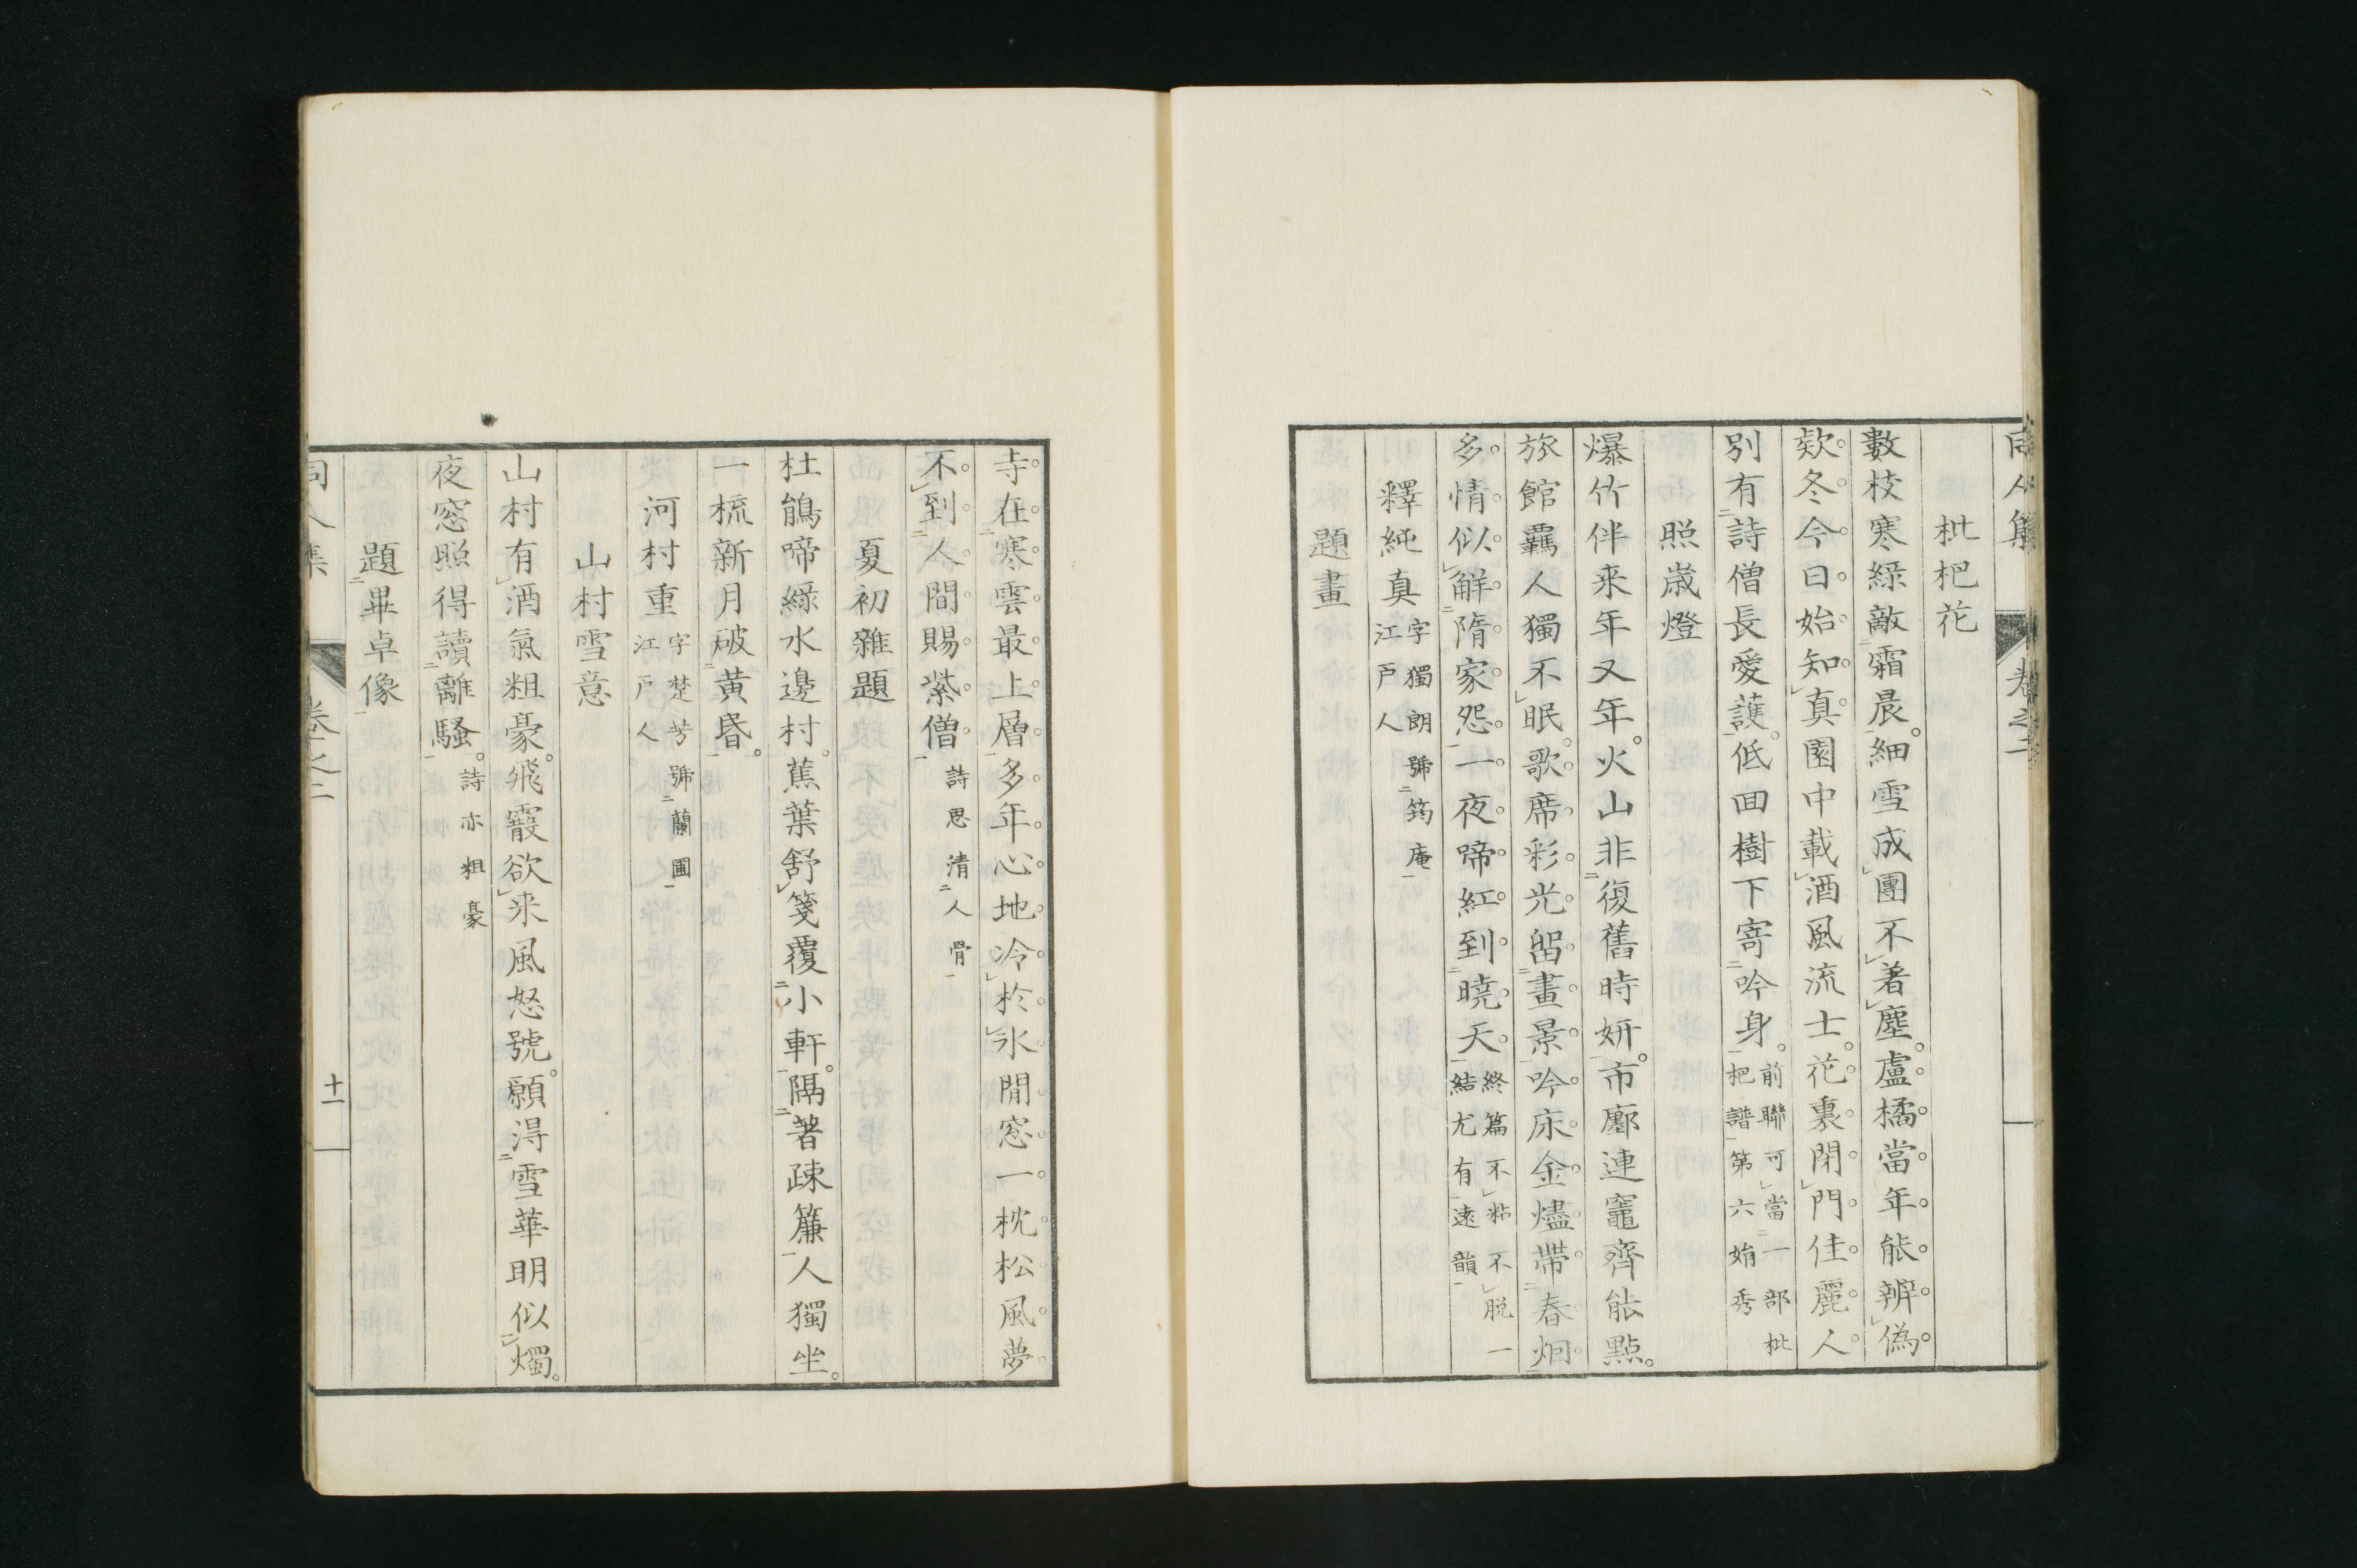 同人集 卷之二
枇杷花
數枝寒綠敵霜晨細雪成團不著塵盧橘當年能辨僞
欵冬今日始知真園中載酒風流士花裏閉門佳麗人
別有詩僧長愛護低回樹下寄吟身前聯可當一部枇
杷譜第六媋秀
照歲燈
爆竹伴来年又年火山非復舊時妍市廛連竈齊能點
旅館羈人獨不眠歌席彩光留晝景吟床金燼帶春烟
多情似解隋家怨一夜啼紅到曉天終篇不粘不脱一
結尤有遠韻
釋純真字獨朗號筠庵
江戸人
題畫
寺在寒雲最上層多年心地冷於氷閒窓一枕松風夢
不到人間賜紫僧詩思清人骨
夏初雜題
杜鵑啼綠水邊村蕉葉舒箋覆小軒隔著疎簾人獨坐
一梳新月破黄昏
河村重字楚芳號蘭圃
江戸人
山村雪意
山村有酒氣粗豪飛霰欲来風怒號願得雪華明似燭
夜窓照得讀離騷詩亦粗豪
題畢卓像
同人集 卷之二 十一